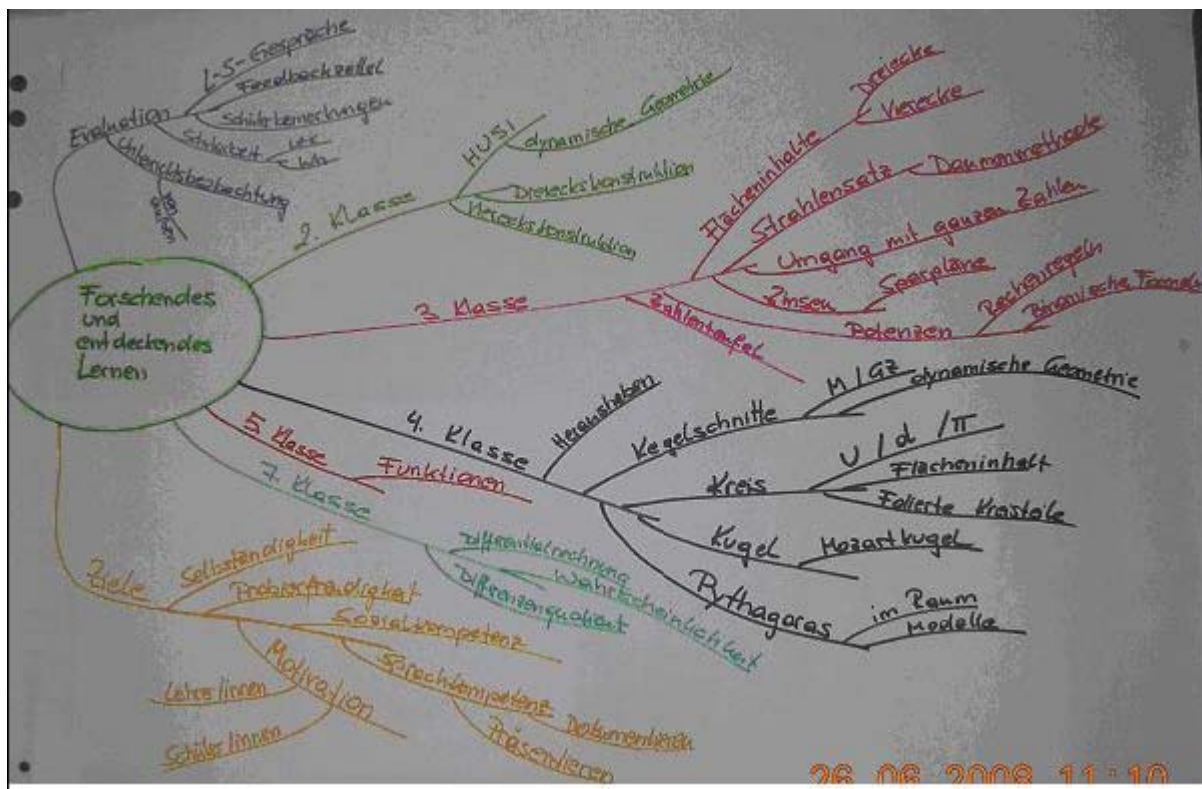 Forschendes
und
entdeckendes
Lernen
Evaluation
L-S-Gespräche
Feedbackzettel
Schülerbemerkungen
2. Klasse
HUSI
dynamische Geometrie
Dreieckskonstruktion
Viereckskonstruktion
3. Klasse
Flächeninhalte
Dreiecke
Vierecke
Strahlensatz
Daumenmethode
Umgang mit ganzen Zahlen
Zinsen
Sparpläne
Potenzen
Rechenregeln
Binomische Formeln
Zahlenteufel
4. Klasse
Herausheben
Kegelschnitte
M/GZ
dynamische Geometrie
Kreis
U/d/π
Flächeninhalt
Folierte Kreisteile
Kugel
Mozartkugel
Pythagoras
im Raum
Modelle
5. Klasse
Funktionen
7. Klasse
Differentialrechnung
Wahrscheinlichkeit
Differenzenquotient
Ziele
Selbständigkeit
Probierfreudigkeit
Sozialkompetenz
Sprachkompetenz
Dokumentieren
Präsentieren
Motivation
Lehrer/innen
Schüler/innen
26.06.2008 11:10